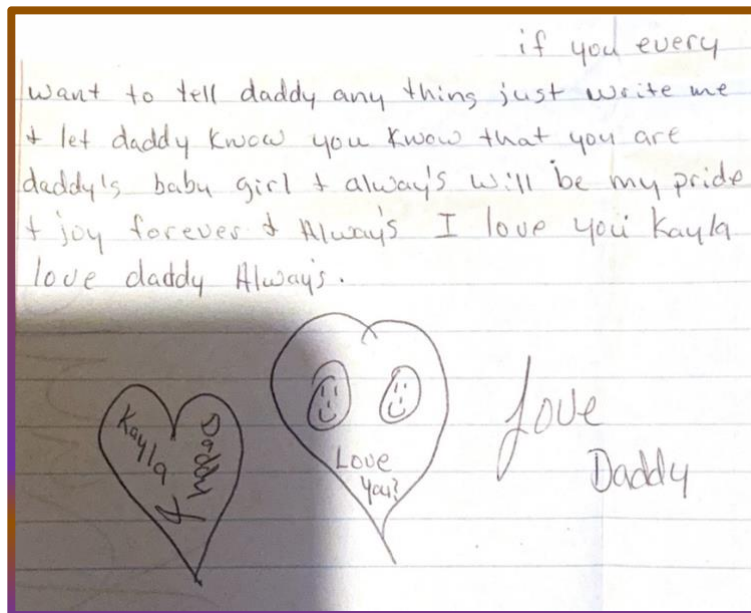 if you every
want to tell daddy any thing just write me
+ let daddy know you know that you are
daddy's baby girl + always's will be my pride
+ joy forever + Alway's I love you Kayla
love daddy Alway's.
Kayla
Daddy
+
Love
You?
Love
Daddy